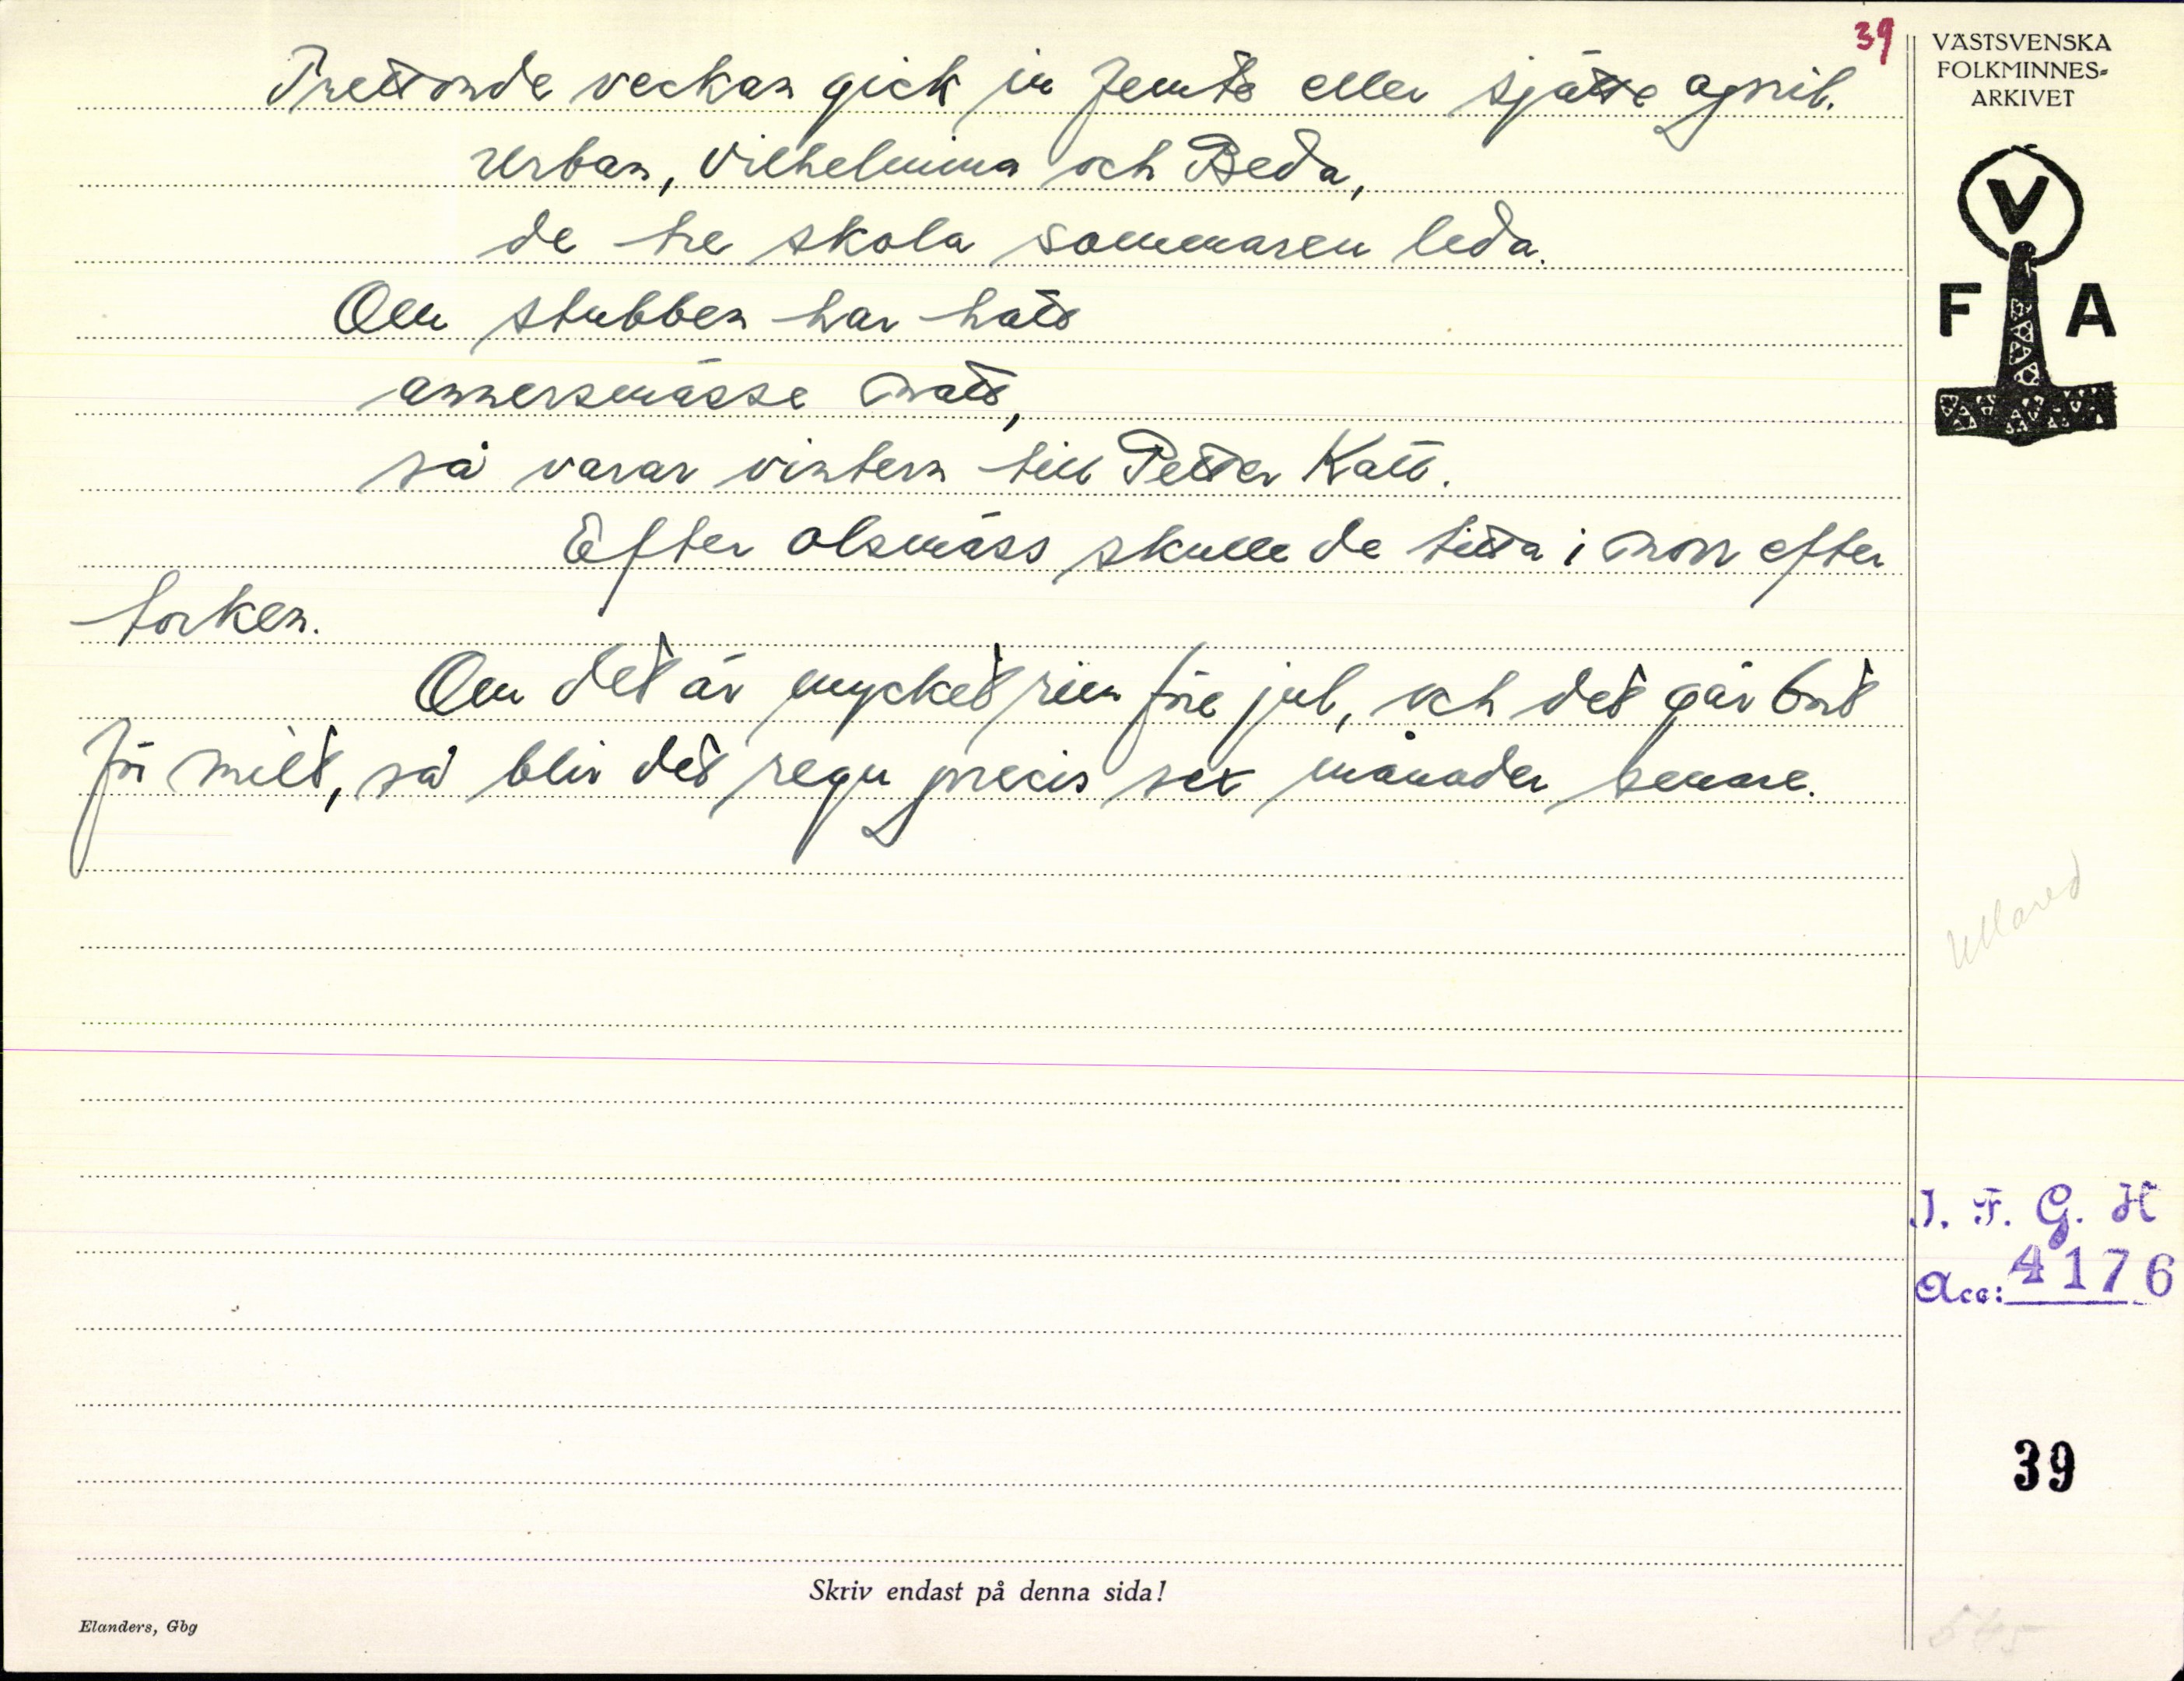 39
Trettonde veckan gick in femte eller sjätte april.
Urban, Vilhelmina och Beda,
de tre skola sommaren leda.
Om stubben har hatt
annersmässe natt,
så varar vintern till Petter Katt.
Efter olsmäss skulle de titta i norr efter
torken.
Om det är mycket rim före jul, och det går bort
för milt, så blir det regn precis sex månader senare.
VÄSTSVENSKA
FOLKMINNES-
ARKIVET
V
F A
Ullared
I. F. G. H
Acc: 4176
39
Skriv endast på denna sida!
Elanders, Gbg